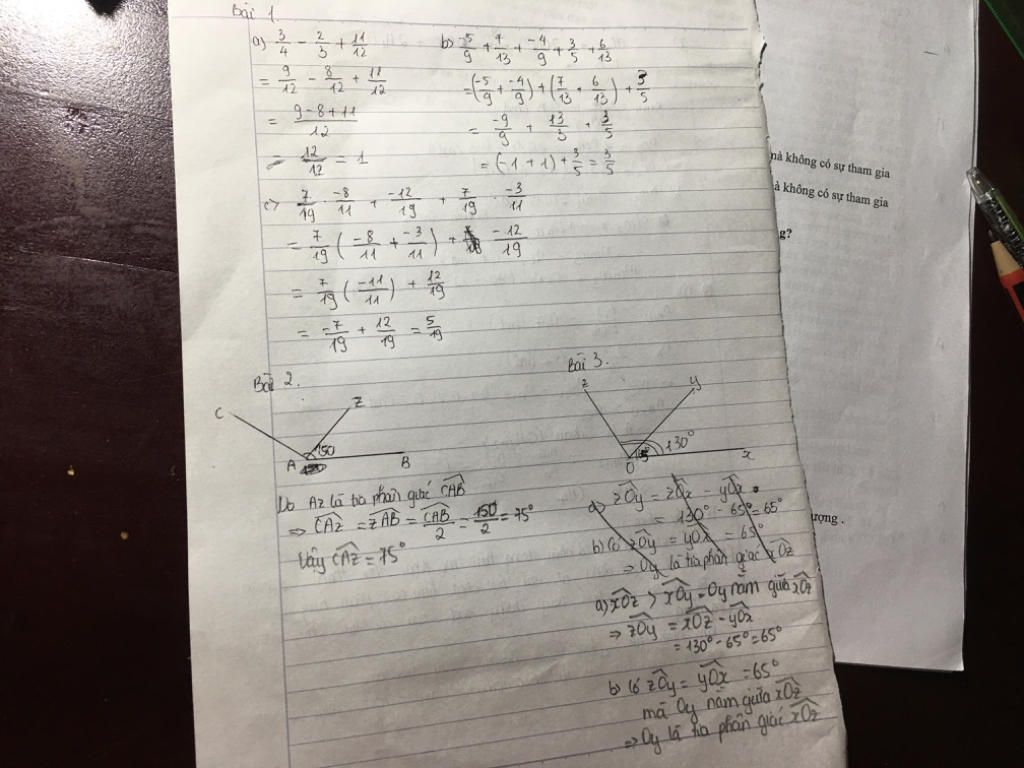 Bài 1.
a) 3/4 - 2/3 + 11/12
= 9/12 - 8/12 + 11/12
= (9-8+11)/12
= 12/12 = 1
b) -5/9 + 7/13 + -4/9 + 3/5 + 6/13
= (-5/9 + -4/9) + (7/13 + 6/13) + 3/5
= -9/9 + 13/3 + 3/5
= (-1 + 1) + 3/5 = 3/5
c) 7/19 . -8/11 + -12/19 + 7/19 . -3/11
= 7/19 (-8/11 + -3/11) + -12/19
= 7/19 (-11/11) + 12/19
= -7/19 + 12/19 = 5/19
Bài 2.
C
z
150
A
B
Do Az là tia phân giác CAB
⇒ CAz = zAB = CAB/2 = 150/2 = 75°
Vậy CAz = 75°
Bài 3.
z
y
130°
O
x
a) zOy = zOx - yOx
= 130° - 65° = 65°
b) Có zOy = yOx = 65°
⇒ Oy là tia phân giác xOz
a) xOz > xOy ⇒ Oy nằm giữa xOz
⇒ zOy = xOz - yOx
= 130° - 65° = 65°
b) Có zOy = yOx = 65°
mà Oy nằm giữa xOz
⇒ Oy là tia phân giác xOz
mà không có sự tham gia
à không có sự tham gia
g?
ượng .